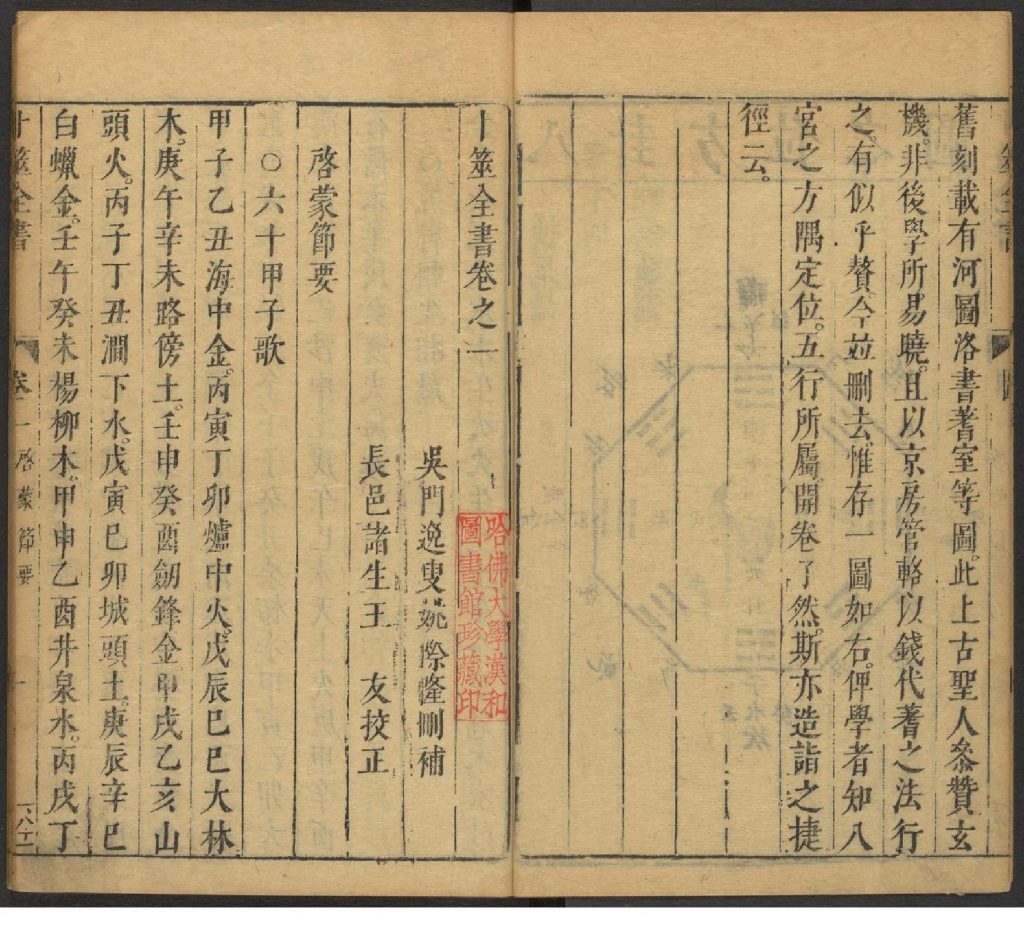 舊刻載有河圖洛書蓍室等圖。此上古聖人參贊玄
機。非後學所易曉。且以京房管輅以錢代蓍之法行
之。有似乎贅。今竝刪去。惟存一圖如右。俾學者知八
宮之方隅定位。五行所屬。開卷了然。斯亦造詣之捷
徑云。
卜筮全書卷之一
哈佛大學漢和
圖書館珍藏印
吳門逸叟姚際隆刪補
長邑諸生王　友挍正
啓蒙節要
○六十甲子歌
甲子乙丑海中金。丙寅丁卯爐中火。戊辰巳巳大林
木。庚午辛未路傍土。壬申癸酉劒鋒金甲戌乙亥山
頭火。丙子丁丑澗下水。戊寅巳卯城頭土。庚辰辛巳
白蠟金。壬午癸未楊柳木。甲申乙酉井泉水。丙戌丁
卜筮全書
卷一
啓蒙節要